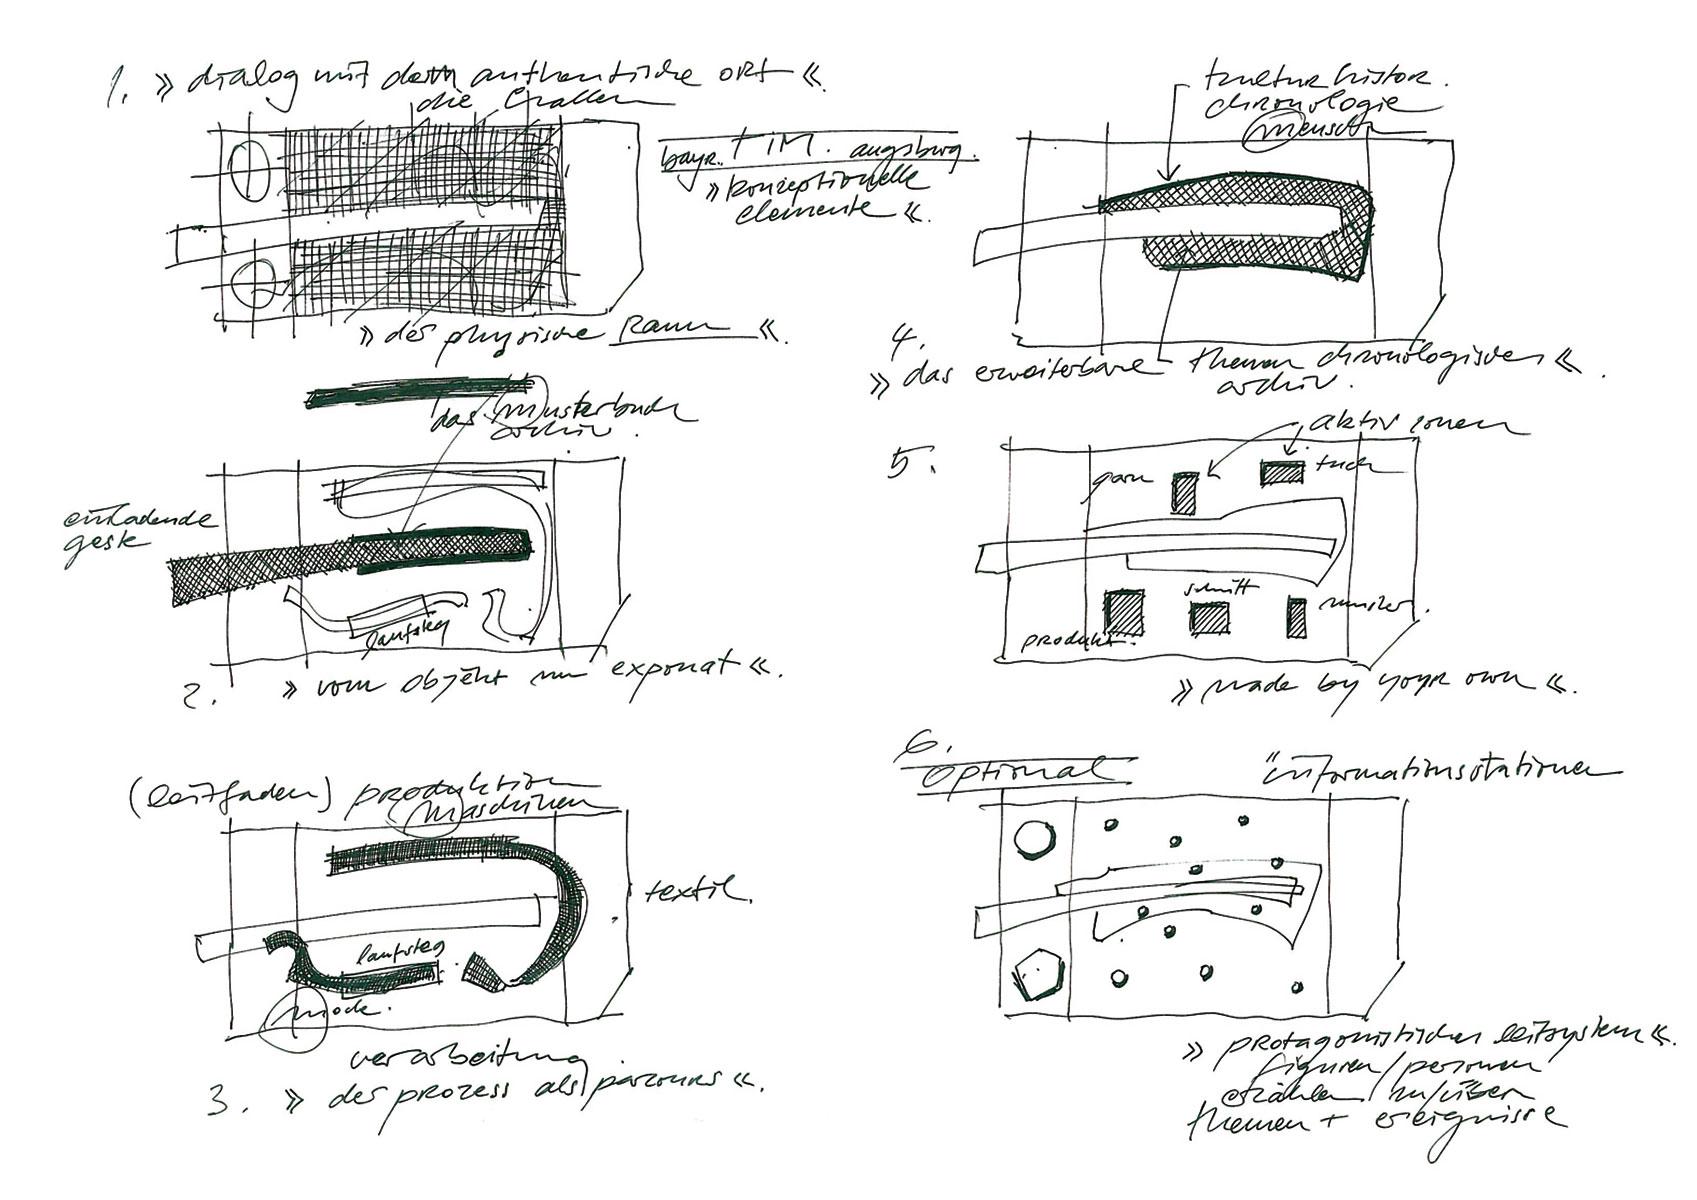 1. » dialog mit dem authentische ort «.
die hallen
» der physische Raum «.
bayr. tim. augsburg.
» konzeptionelle
elemente «.
das musterbuch
archiv.
einladende
geste
laufsteg
2. » vom objekt zum exponat «.
(leitfaden) produktion
maschinen
textil.
laufsteg
mode.
verarbeitung.
3. » der prozess als parcours «.
kultur histor.
chronologie
mensch
4.
» das erweiterbare themen chronologischen «.
archiv.
5.
aktiv zonen
garn
tuch
schnitt
muster.
produkt.
» made by your own «.
6.
optional
"informationsstationen
» protagonistisches leitsystem «.
figuren/personen
erzählen zu/über
themen + ereignisse